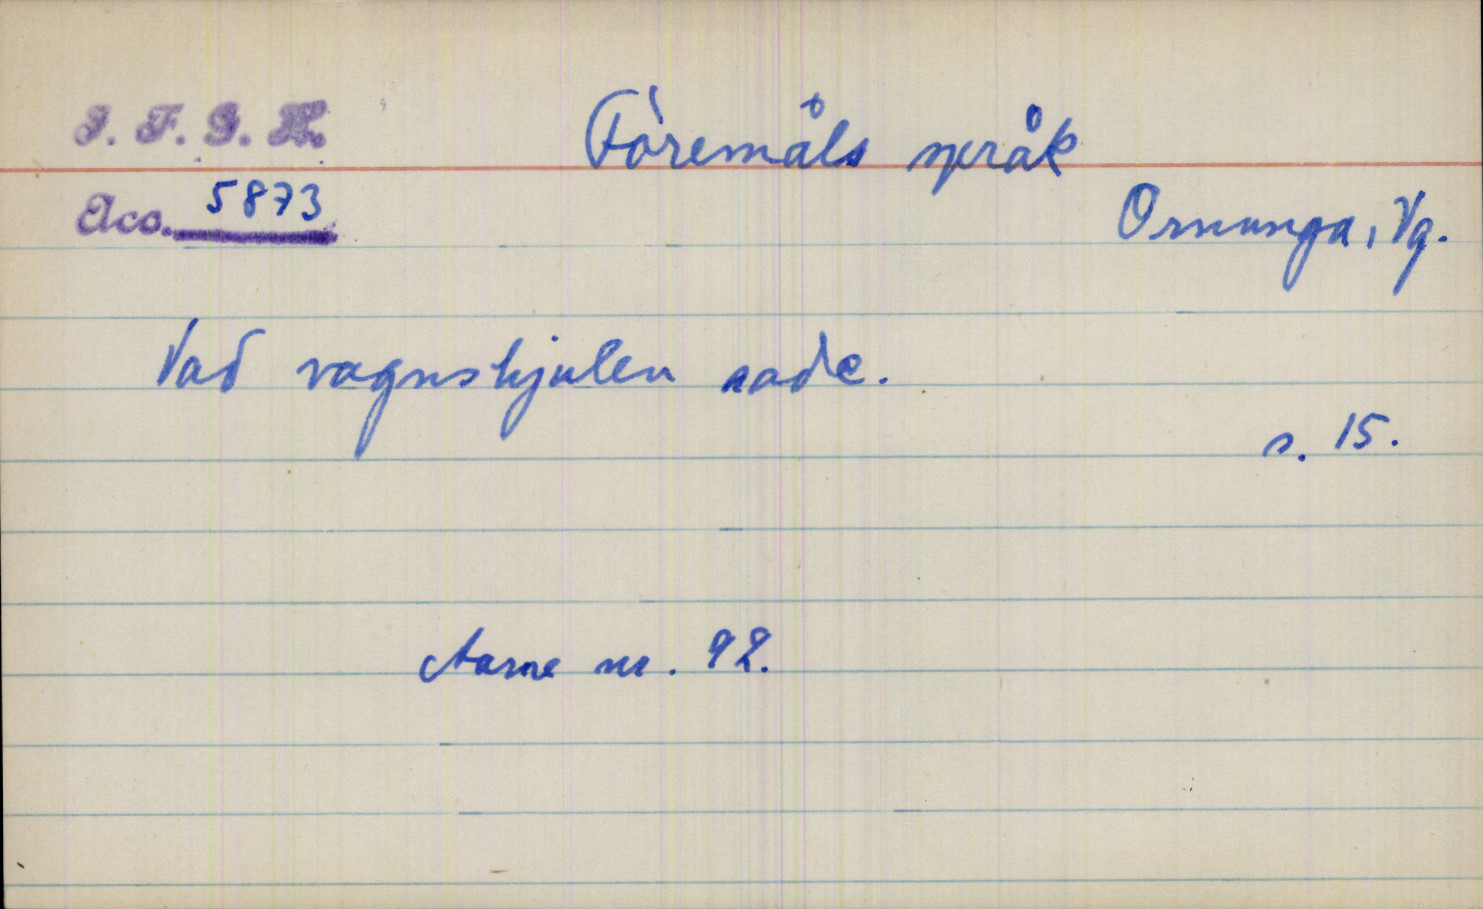 I. F. G. H.
Föremåls språk
Acc. 5873
Ornunga, Vg.
Vad vagnshjulen sade.
s. 15.
Aarne nr. 92.